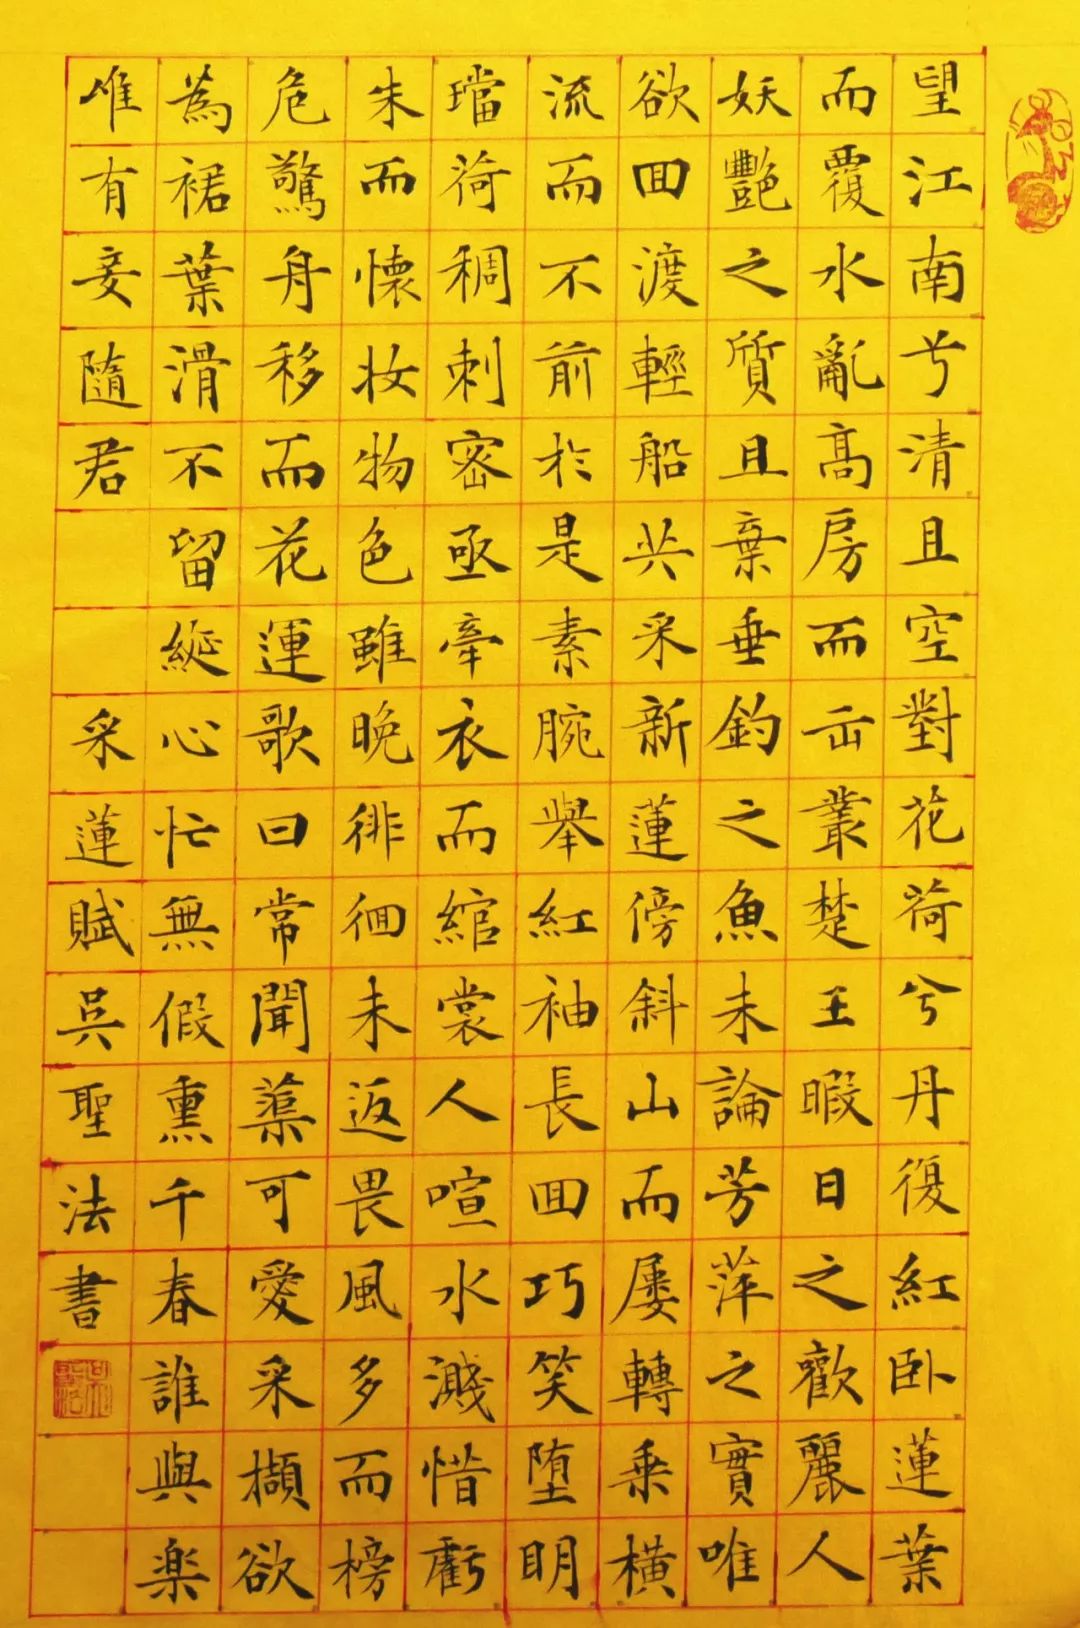 望江南兮清且空對花荷兮丹復紅卧蓮葉
而覆水亂高房而出叢楚王暇日之歡麗人
妖艷之質且棄垂釣之魚未論芳萍之實唯
欲回渡輕船共采新蓮傍斜山而屡轉乗横
流而不前於是素腕舉紅袖長回巧笑堕明
璫荷稠刺密亟牽衣而綰裳人喧水濺惜虧
朱而懷妝物色雖晚徘徊未返畏風多而榜
危驚舟移而花運歌曰常聞蕖可愛采擷欲
為裙葉滑不留綖心忙無假熏千春誰與楽
唯有妾隨君 采蓮賦吳聖法書